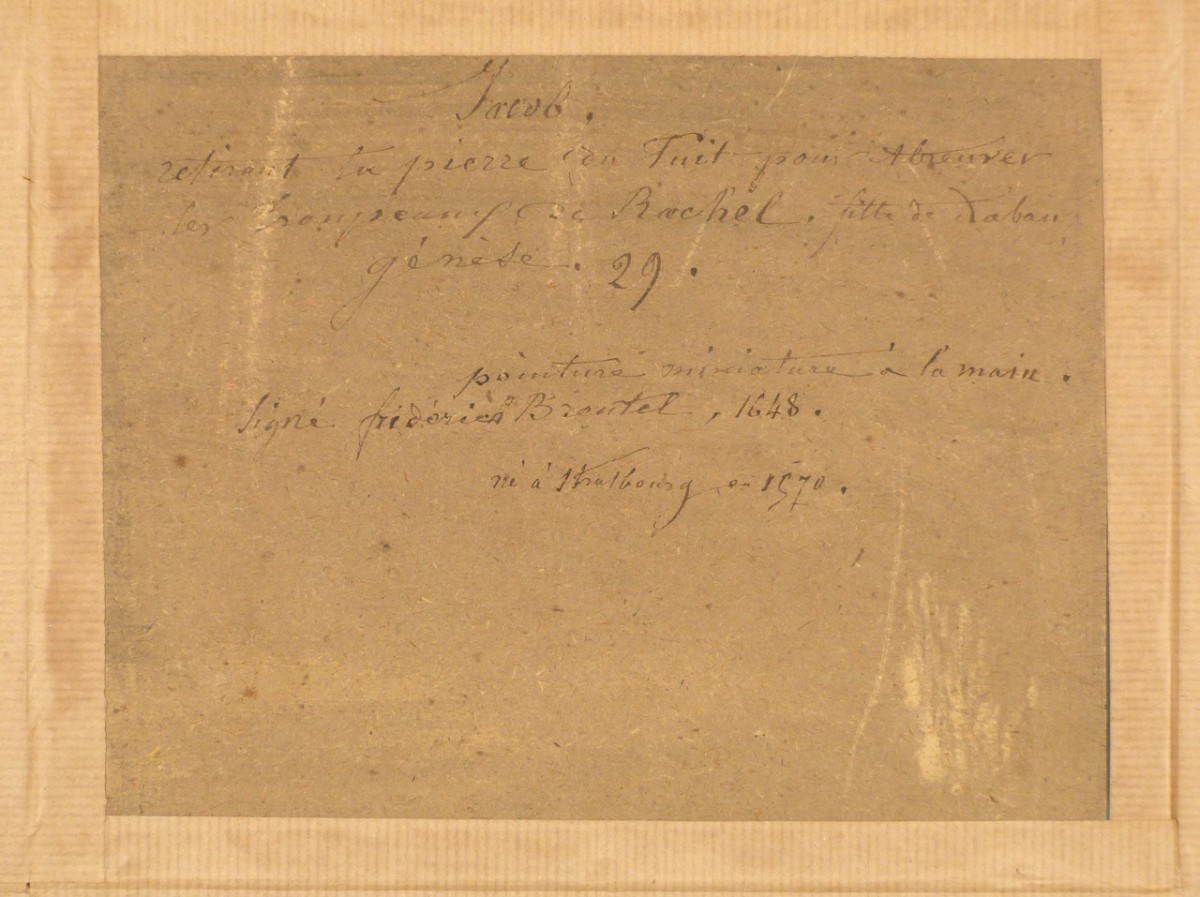 Jacob.
retirant la pierre du Puit pour Abreuver
les troupeaux de Rachel. fille de Laban
génèse. 29.
peinture miniature à la main.
Signé frédéric Brentel, 1648.
né à Strasbourg en 1570.